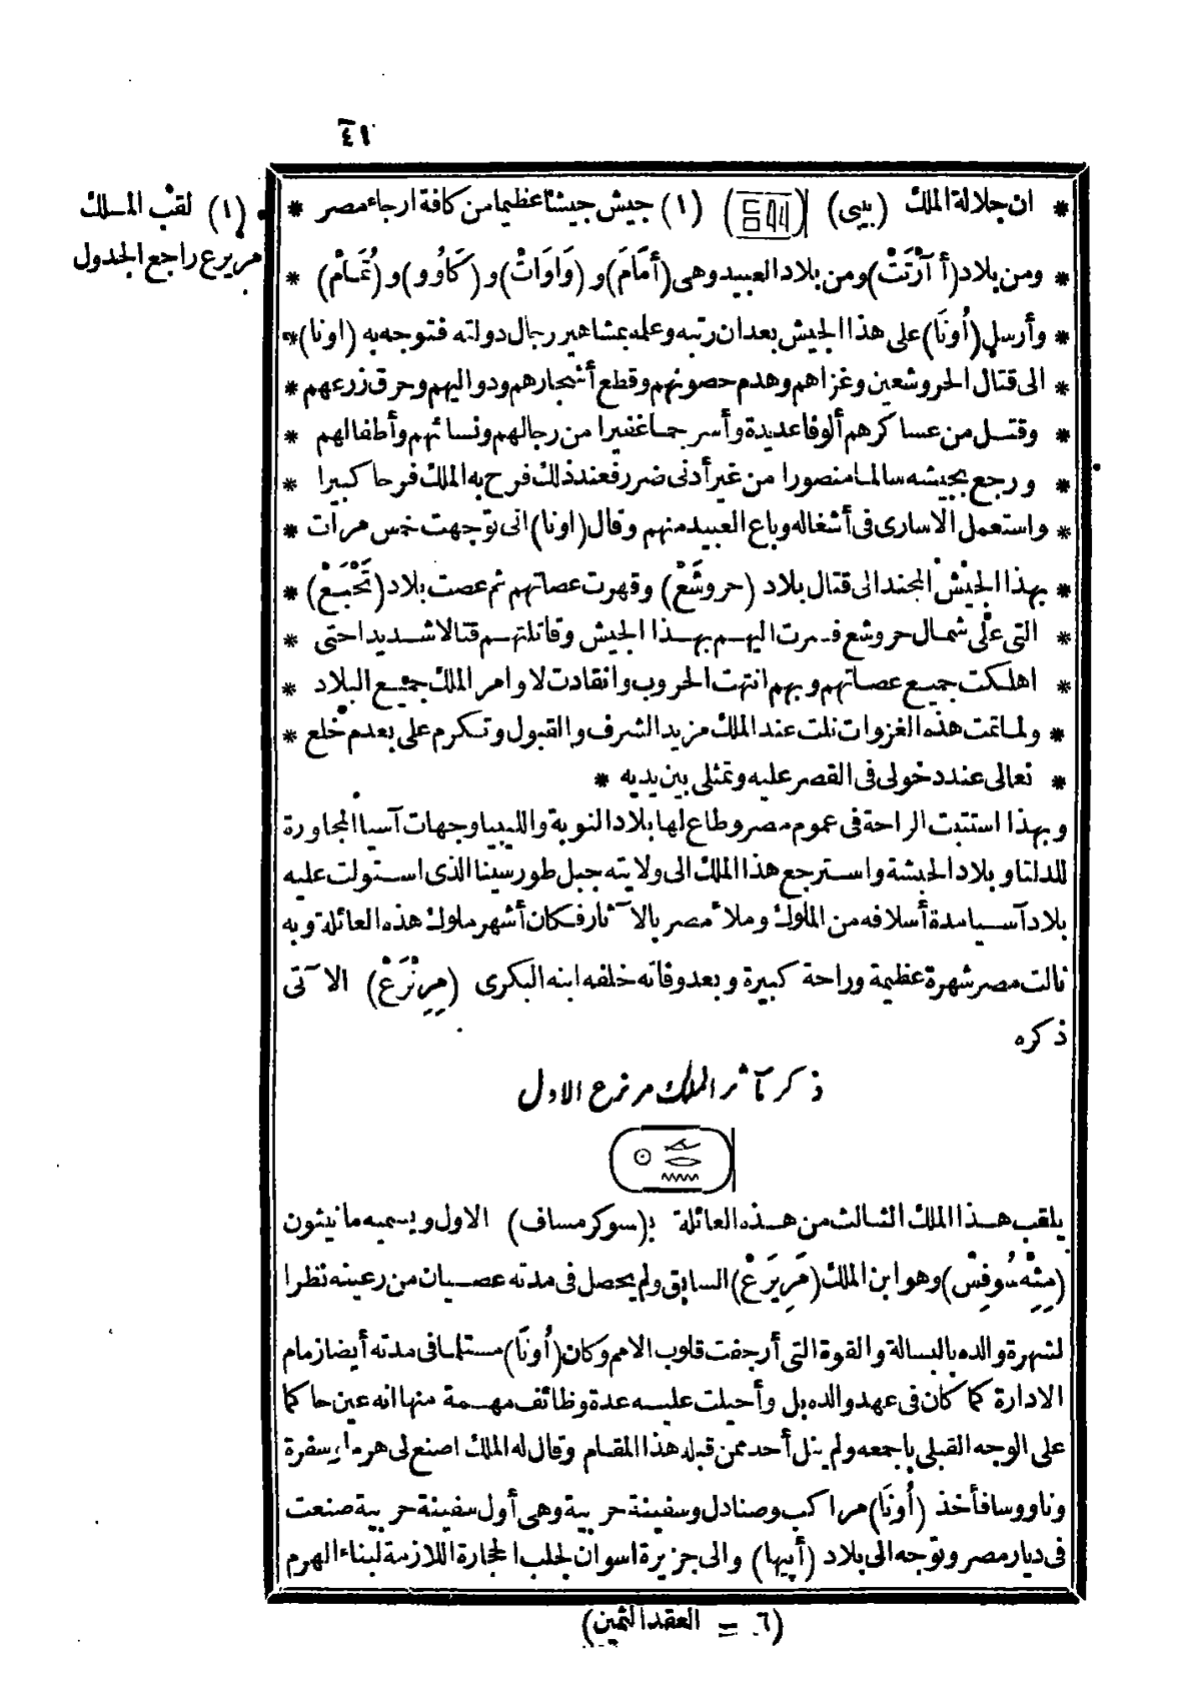 ٤١
* ان جلالة الملك (بيبى) (١) جيش جيشا عظيما من كافة ارجاء مصر *
(١) لقب الملك
مريرع راجع الجدول
* ومن بلاد (أ آرْتَتْ) ومن بلاد العبيد وهى (أمَامَ) و (وَاوَاتْ) و (كَاوُو) و (تُمَامْ) *
* وأرسل (أُونَا) على هذا الجيش بعد ان رتبه وعلمه بمشاهير رجال دولته فتوجه به (اونا) *
* الى قتال الحروشعين وغزاهم وهدم حصونهم وقطع أشجارهم ودواليهم وحرق زرعهم *
* وقتل من عساكرهم ألوفا عديدة وأسر جما غفيرا من رجالهم ونسائهم وأطفالهم *
* ورجع بجيشه سالما منصورا من غير أدنى ضرر فعند ذلك فرح به الملك فرحا كبيرا *
* واستعمل الاسارى فى أشغاله وباع العبيد منهم وقال (اونا) انى توجهت خمس مرات *
* بهذا الجيش المجند الى قتال بلاد (حروشَعْ) وقهرت عصاتهم ثم عصت بلاد (تَخْبَعْ) *
* التى على شمال حروشع فسرت اليهم بهذا الجيش وقاتلتهم قتالا شديدا حتى *
* اهلكت جميع عصاتهم وبهم انتهت الحروب وانقادت لاوامر الملك جميع البلاد *
* ولما تمت هذه الغزوات نلت عند الملك مزيد الشرف والقبول وتكرم على بعدم خلع *
* نعالى عند دخولى فى القصر عليه وتمثلى بين يديه *
وبهذا استتبت الراحة فى عموم مصر وطاع لها بلاد النوبة والليبيا وجهات آسيا المجاورة
للدلتا وبلاد الحبشة واسترجع هذا الملك الى ولايته جبل طور سينا الذى استولت عليه
بلاد آسيا مدة أسلافه من الملوك وملأ مصر بالآثار فكان أشهر ملوك هذه العائلة وبه
نالت مصر شهرة عظيمة وراحة كبيرة وبعد وفاته خلفه ابنه البكرى (مِرِنْرَعْ) الآتى
ذكره
ذكر مآثر الملك مرنرع الاول
يلقب هذا الملك الثالث من هذه العائلة بـ (سوكرمساف) الاول ويسميه مانيثون
(مِتِهْ سُوفِسْ) وهو ابن الملك (مَرِيرَعْ) السابق ولم يحصل فى مدته عصيان من رعيته نظرا
لشهرة والده بالبسالة والقوة التى أرجفت قلوب الامم وكان (أُونَا) مستلما فى مدته أيضا زمام
الادارة كما كان فى عهد والده بل وأحيلت عليه عدة وظائف مهمة منها انه عين حاكما
على الوجه القبلى باجمعه ولم ينل أحد ممن قبله هذا المقام وقال له الملك اصنع لى هرما وسفرة
وناووسا فأخذ (أُونَا) مراكب وصنادل وسفينة حربية وهى أول سفينة حربية صنعت
فى ديار مصر وتوجه الى بلاد (أَبِيها) والى جزيرة اسوان لجلب الحجارة اللازمة لبناء الهرم
(٦ = العقد الثمين)